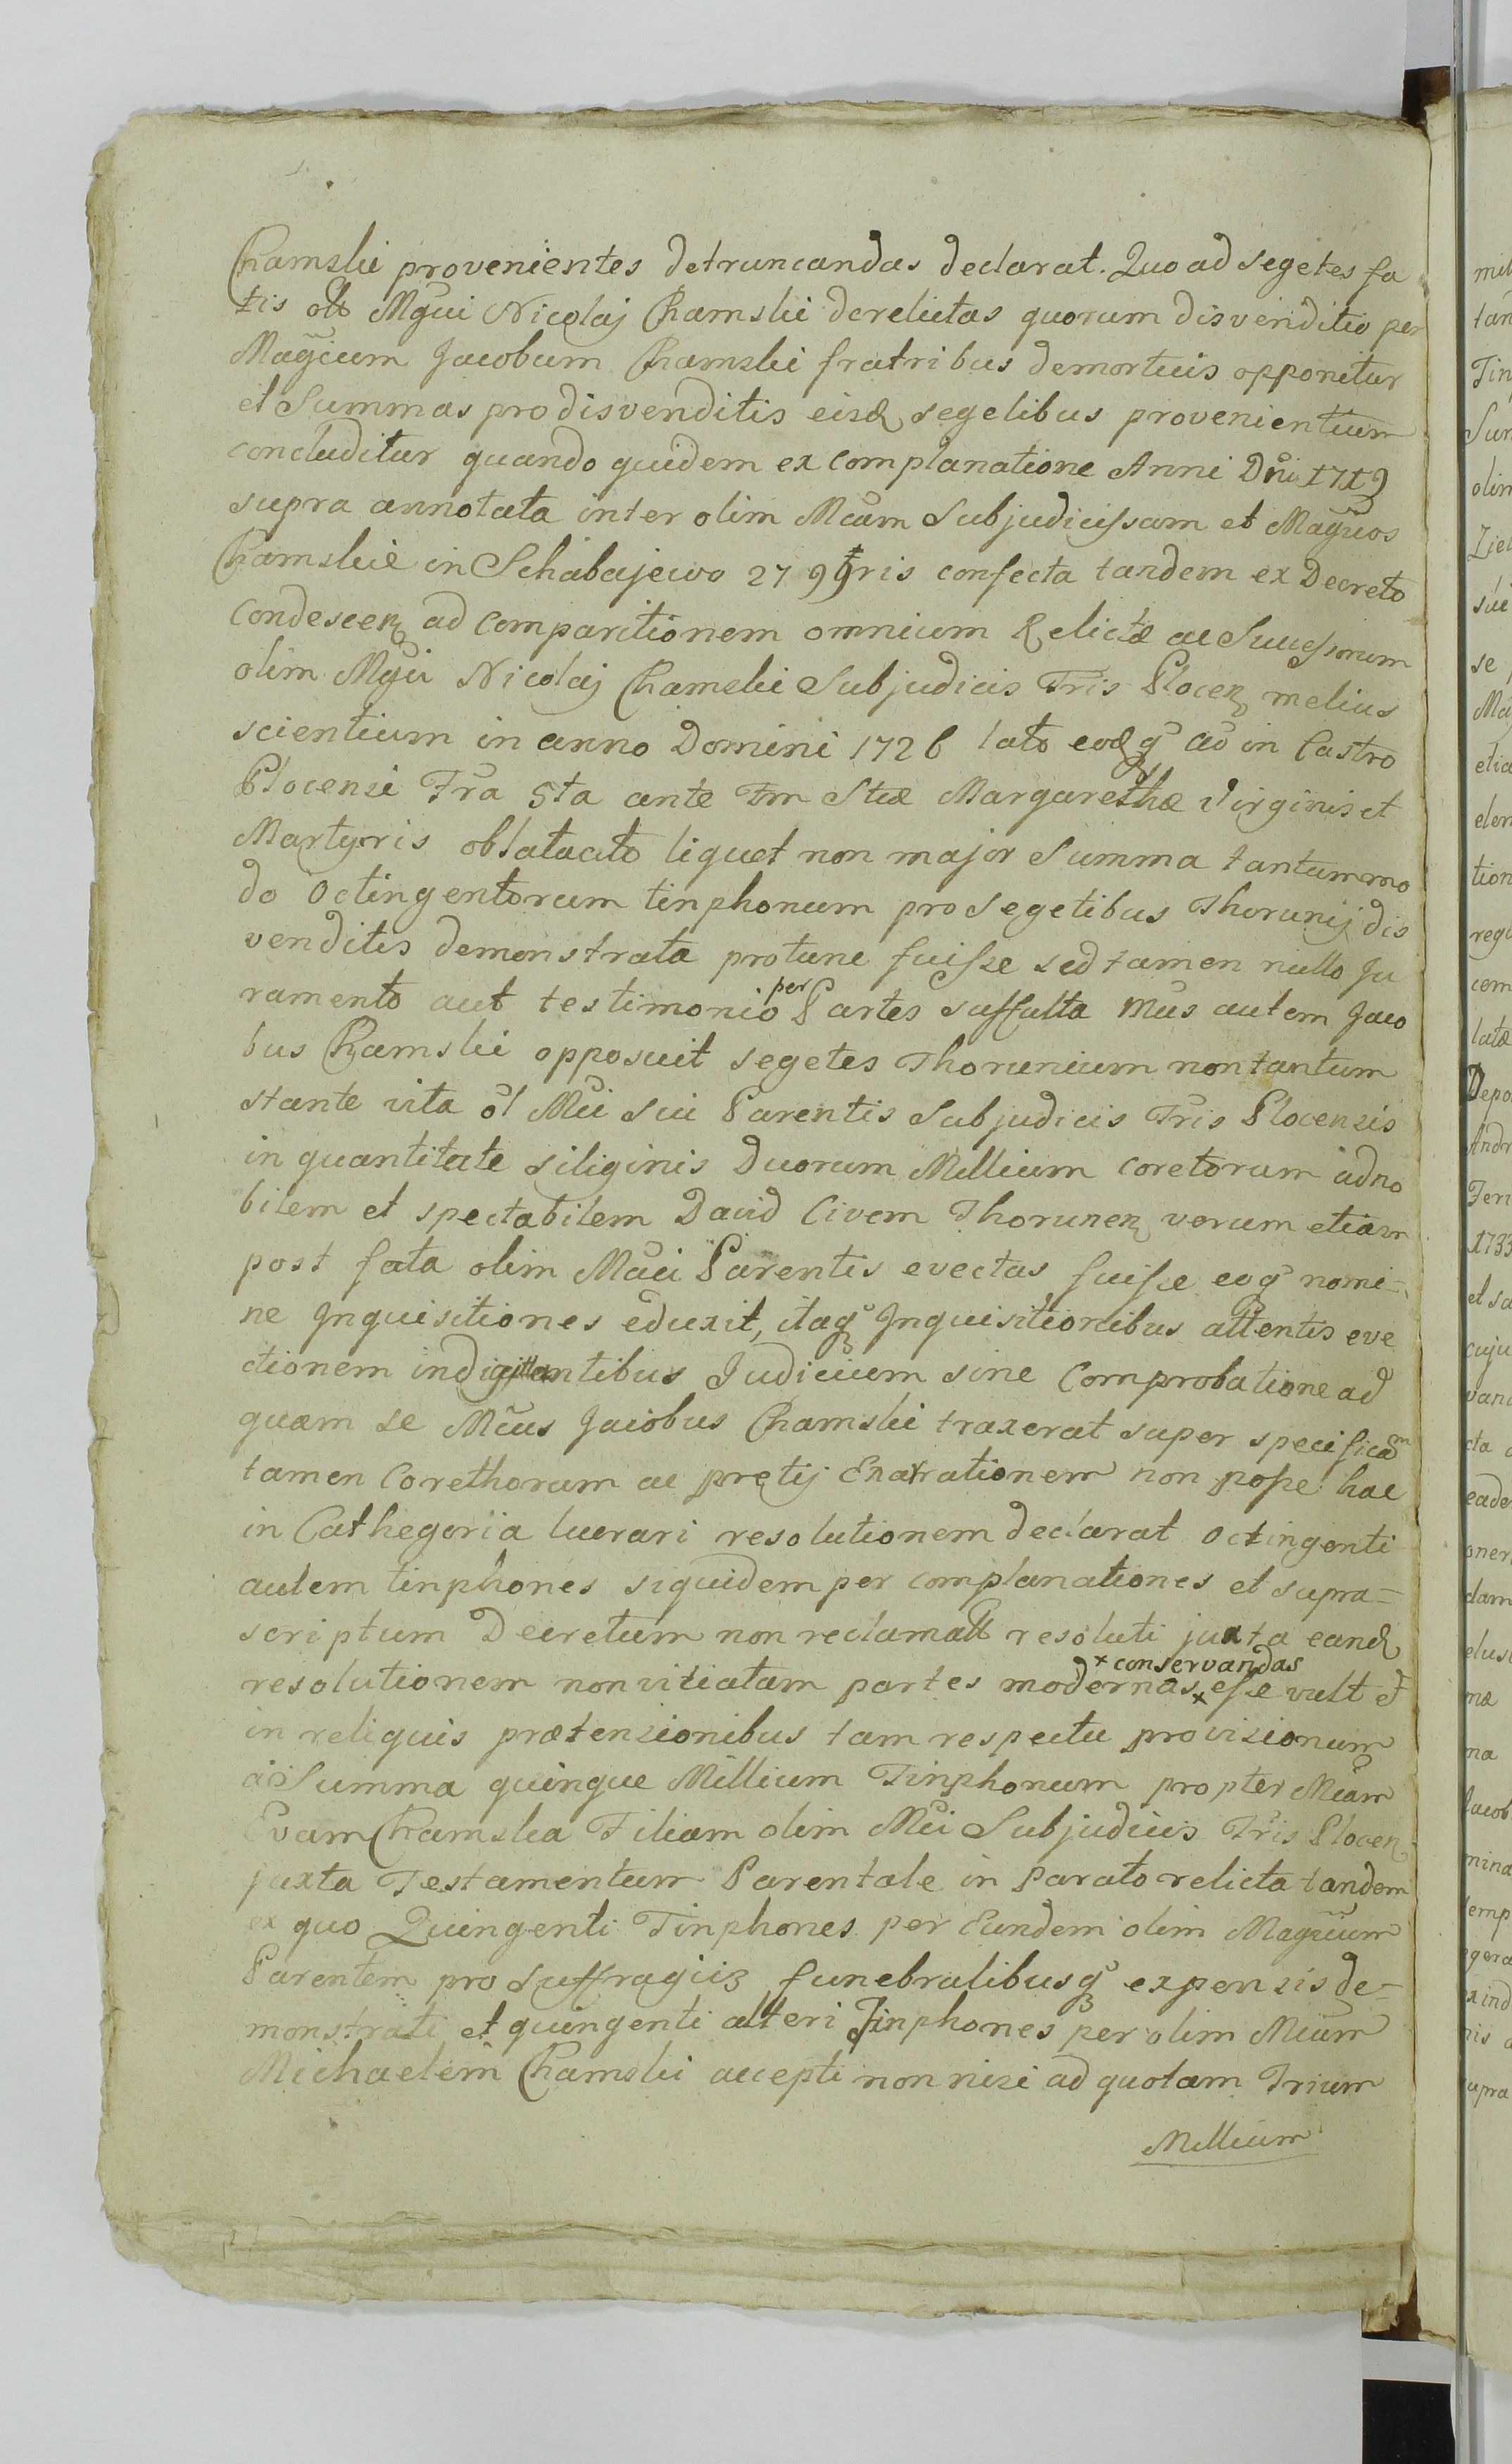 Chamski provenientes detruncandas declarat. Quo ad segetes fa
tis olt Mgui Nicolaj Chamski derelictas quorum disvenditio per
Magcum Jacobum Chamski fratribus demortuis opponitur
et Summas pro disvenditis eisd segetibus provenientium
concluditur quando quidem ex complanatione Anni Dni 1719
supra annotata inter olim Mcam Subjudicissam et Magcos
Chamskie in Schabajewo 27 9bris confecta tandem ex Decreto
Condescen ad comparitionem omnium Relictæ ac Successorum
olim Mgci Nicolaj Chamski Subjudicis Tris Plocen melius
scientium in anno Domini 1726 lato eodq ao in Castro
Plocensi Fra 5ta ante Fm Stæ Margarethæ Virginis et
Martyris oblata acto liquet non major Summa tantummo
do Octingentorum tinphonum pro segetibus Thorunij dis
venditis demonstrata protunc fuisse sed tamen nullo Ju
ramento aut testimonio per Partes suffulta Mcus autem Jaco
bus Chamski opposuit segetes Thorunium non tantum
stante vita ol Mci sui Parentis Subjudicis Tris Plocensis
in quantitate siliginis Duorum Millium coretorum ad no
bilem et spectabilem David Civem Thorunen verum etiam
post fata olim Mcci Parentis evectas fuisse eoq nomi-
ne Inquisitiones eduxit, itaq Inquisitionibus attentis eve
ctionem indigitantibus Judicium sine Comprobatione ad
quam se Mcus Jacobus Chamski traxerat super specificam
tamen Corethorum ac prætij Exarationem non posse hac
in Cathegoria lucrari resolutionem declarat Octingenti
autem tinphones siquidem per complanationes et supra-
scriptum Decretum non reclamatt resoluti juxta eand
resolutionem non vitiatam partes modernas x conservandas x esse vult et
in reliquis prætensionibus tam respectu provisionum
a Summa quinque Millium Tinphonum propter Mcam
Evam Chamska Filiam olim Mci Subjudicis Tris Plocen
juxta Testamentum Parentale in Parato relicta tandem
ex quo Quingenti Tinphones per Eundem olim Magcum
Parentem pro suffragiis funebralibusq expensis de-
monstrati et quingenti alteri Tinphones per olim Mcum
Michaelem Chamski accepti non nisi ad quotam Trium
Millium